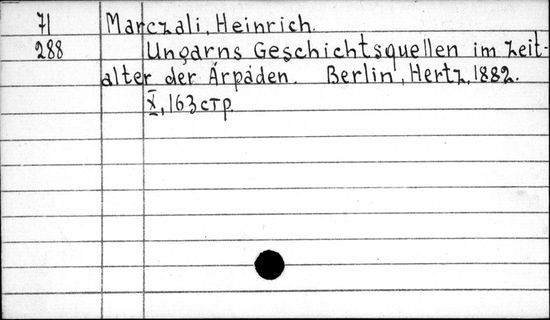 71 Marczali, Heinrich.
288 Ungarns Geschichtsquellen im Zeit-
alter der Árpáden. Berlin, Hertz, 1882.
X, 163 стр.